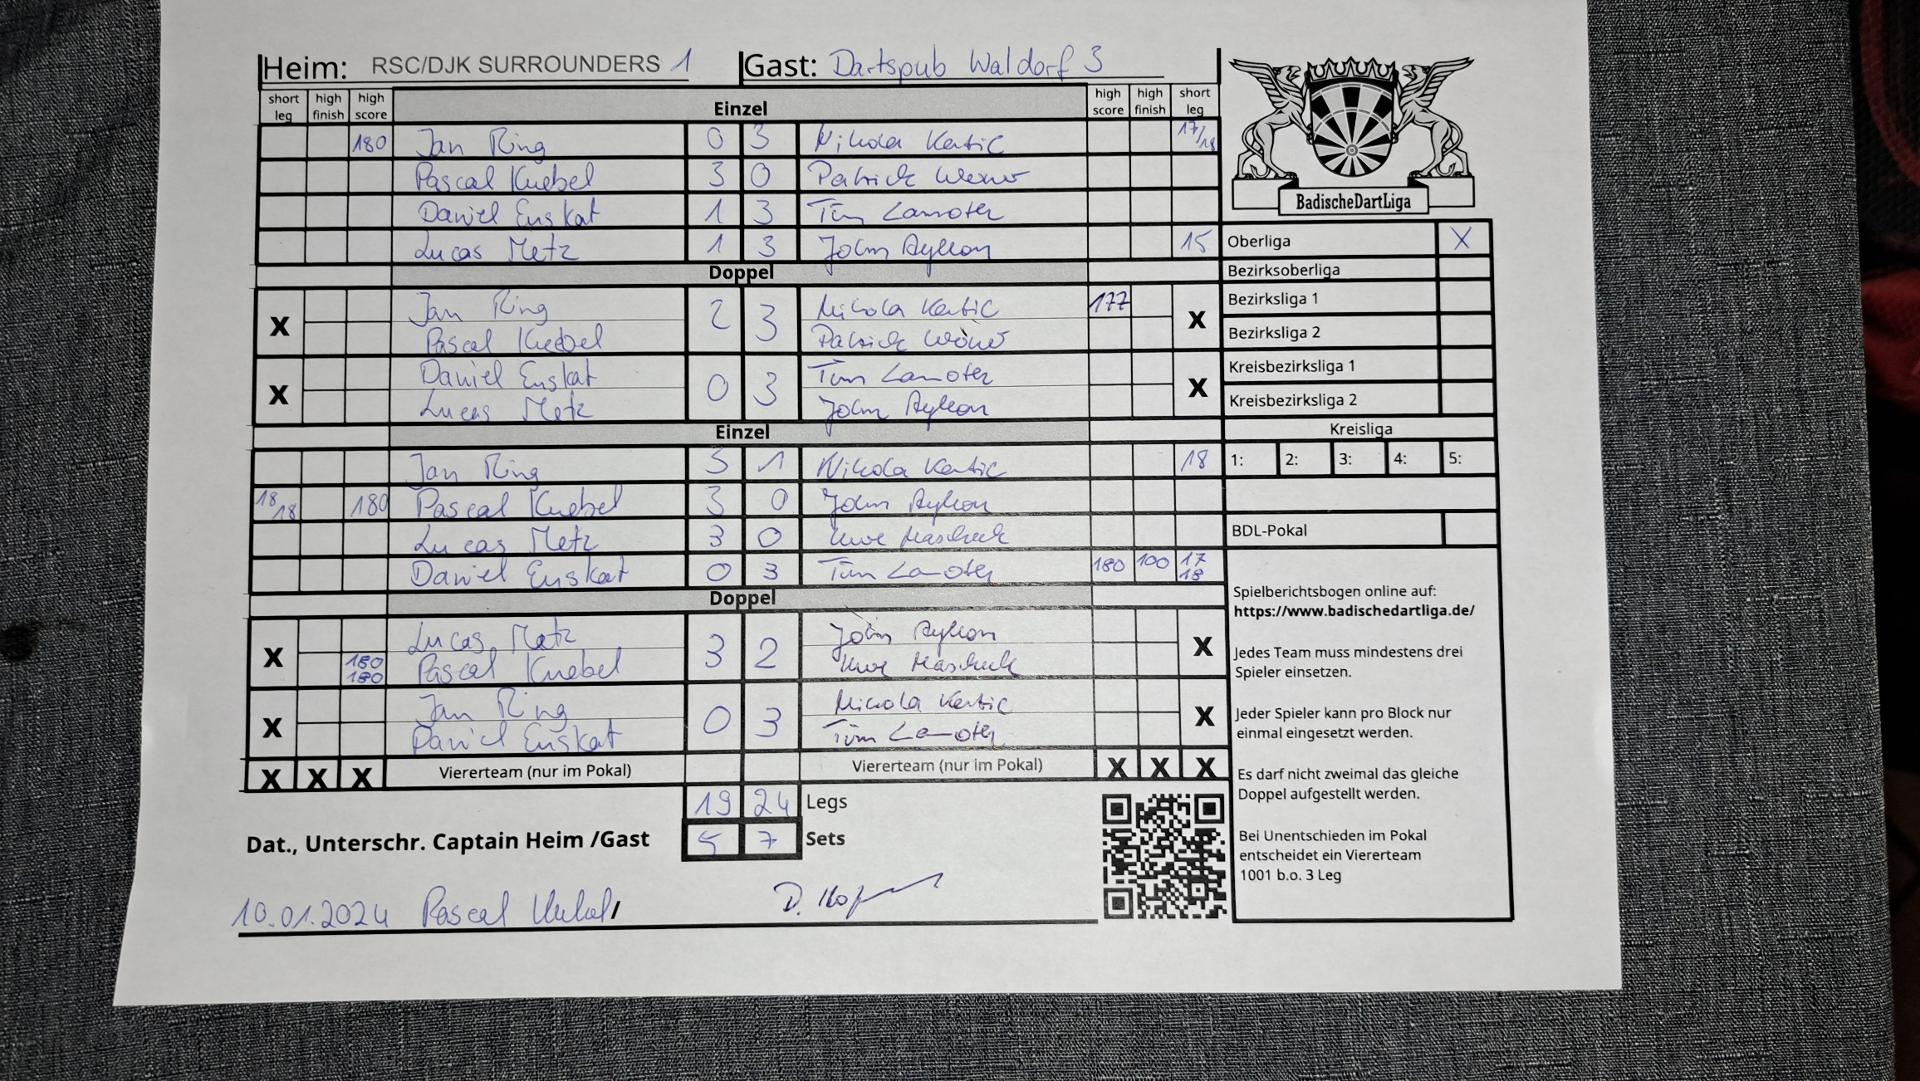 Heim: RSC/DJK SURROUNDERS 1 Gast: Dartspub Waldorf 3
short leg high finish high score Einzel high score high finish short leg
180 Jan Ring 0 3 Nikola Kertic 17/18
Pascal Knebel 3 0 Patrick
Daniel Enskat 1 3 Tim Lamoter
Lucas Metz 1 3 John Aykon 15
Doppel
X Jan Ring 2 3 Nikola Kertic 177 X
Pascal Knebel Patrick
X Daniel Enskat 0 3 Tim Lamoter X
Lucas Metz John Aykon
Einzel
Jan Ring 3 1 Nikola Kertic 18
18/18 180 Pascal Knebel 3 0 John Aykon
Lucas Metz 3 0 Uwe Mascheck
Daniel Enskat 0 3 Tim Lamoter 180 100 17 18
Doppel
X Lucas Metz 3 2 John Aykon X
180 180 Pascal Knebel Uwe Mascheck
X Jan Ring 0 3 Nicola Kertic X
Daniel Enskat Tim Lamoter
X X X Viererteam (nur im Pokal) Viererteam (nur im Pokal) X X X
19 24 Legs
Dat., Unterschr. Captain Heim /Gast 5 7 Sets
10.01.2024 Pascal Knebel/ D.
BadischeDartLiga
Oberliga X
Bezirksoberliga
Bezirksliga 1
Bezirksliga 2
Kreisbezirksliga 1
Kreisbezirksliga 2
Kreisliga
1: 2: 3: 4: 5:
BDL-Pokal
Spielberichtsbogen online auf:
https://www.badischedartliga.de/
Jedes Team muss mindestens drei
Spieler einsetzen.
Jeder Spieler kann pro Block nur
einmal eingesetzt werden.
Es darf nicht zweimal das gleiche
Doppel aufgestellt werden.
Bei Unentschieden im Pokal
entscheidet ein Viererteam
1001 b.o. 3 Leg